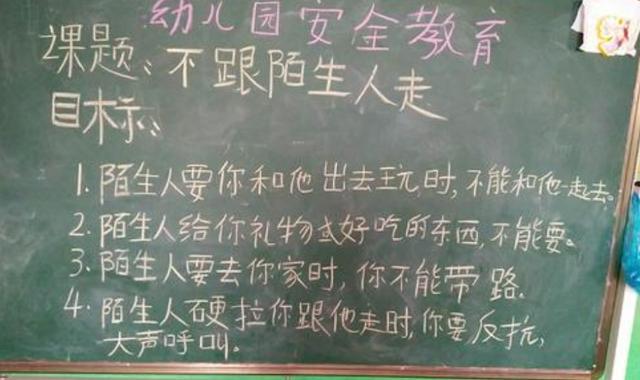 幼儿园安全教育
课题:不跟陌生人走
目标:
1. 陌生人要你和他出去玩时,不能和他一起去。
2. 陌生人给你礼物或好吃的东西,不能要。
3. 陌生人要去你家时,你不能带路.
4. 陌生人硬拉你跟他走时,你要反抗,
大声呼叫。